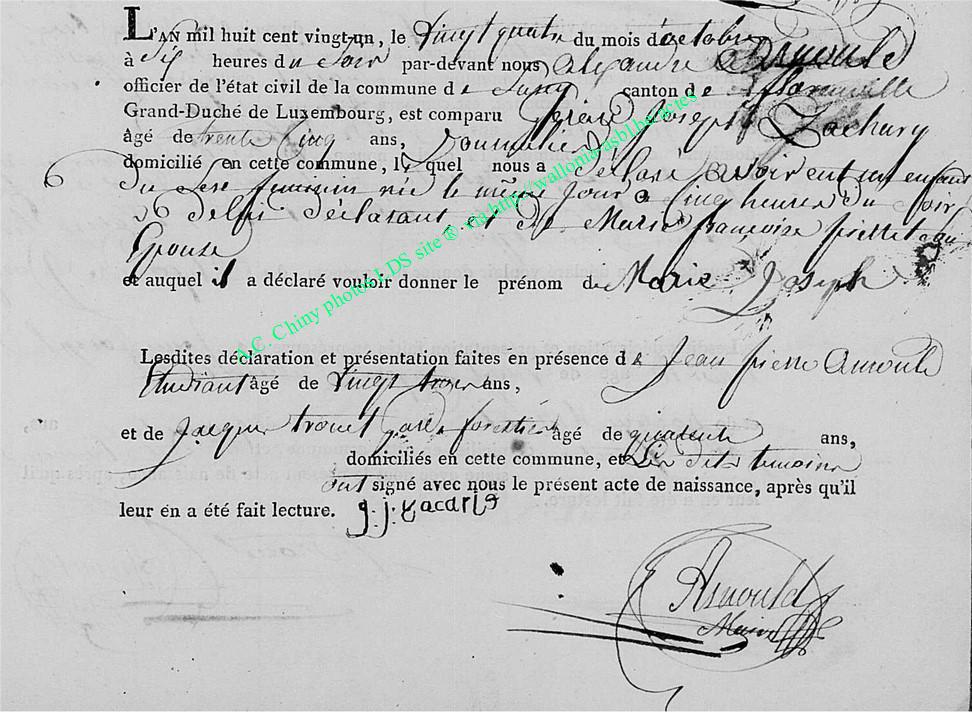 L'AN mil huit cent vingt-un, le vingt quatre du mois d'octobre
à six heures du soir par-devant nous alexandre Arnould
officier de l'état civil de la commune de canton de
Grand-Duché de Luxembourg, est comparu joseph Zachary
âgé de trente cinq ans,
domicilié en cette commune, lequel nous a déclaré avoir eut un enfant
du sexe feminin née le même jour à cinq heures du soir
de déclarant et de Marie françoise pierret
Epouse
et auquel il a déclaré vouloir donner le prénom de Marie Joseph
Lesdites déclaration et présentation faites en présence de Jean pierre arnould
Etudiant âgé de vingt trois ans,
et de jacques garde forestier âgé de ans,
domiciliés en cette commune, et les dits temoins
ont signé avec nous le présent acte de naissance, après qu'il
leur en a été fait lecture. g. j. zacaris
Arnould
A.C. Chiny photos LDS site ® via http://wallonia.asbl.haractes